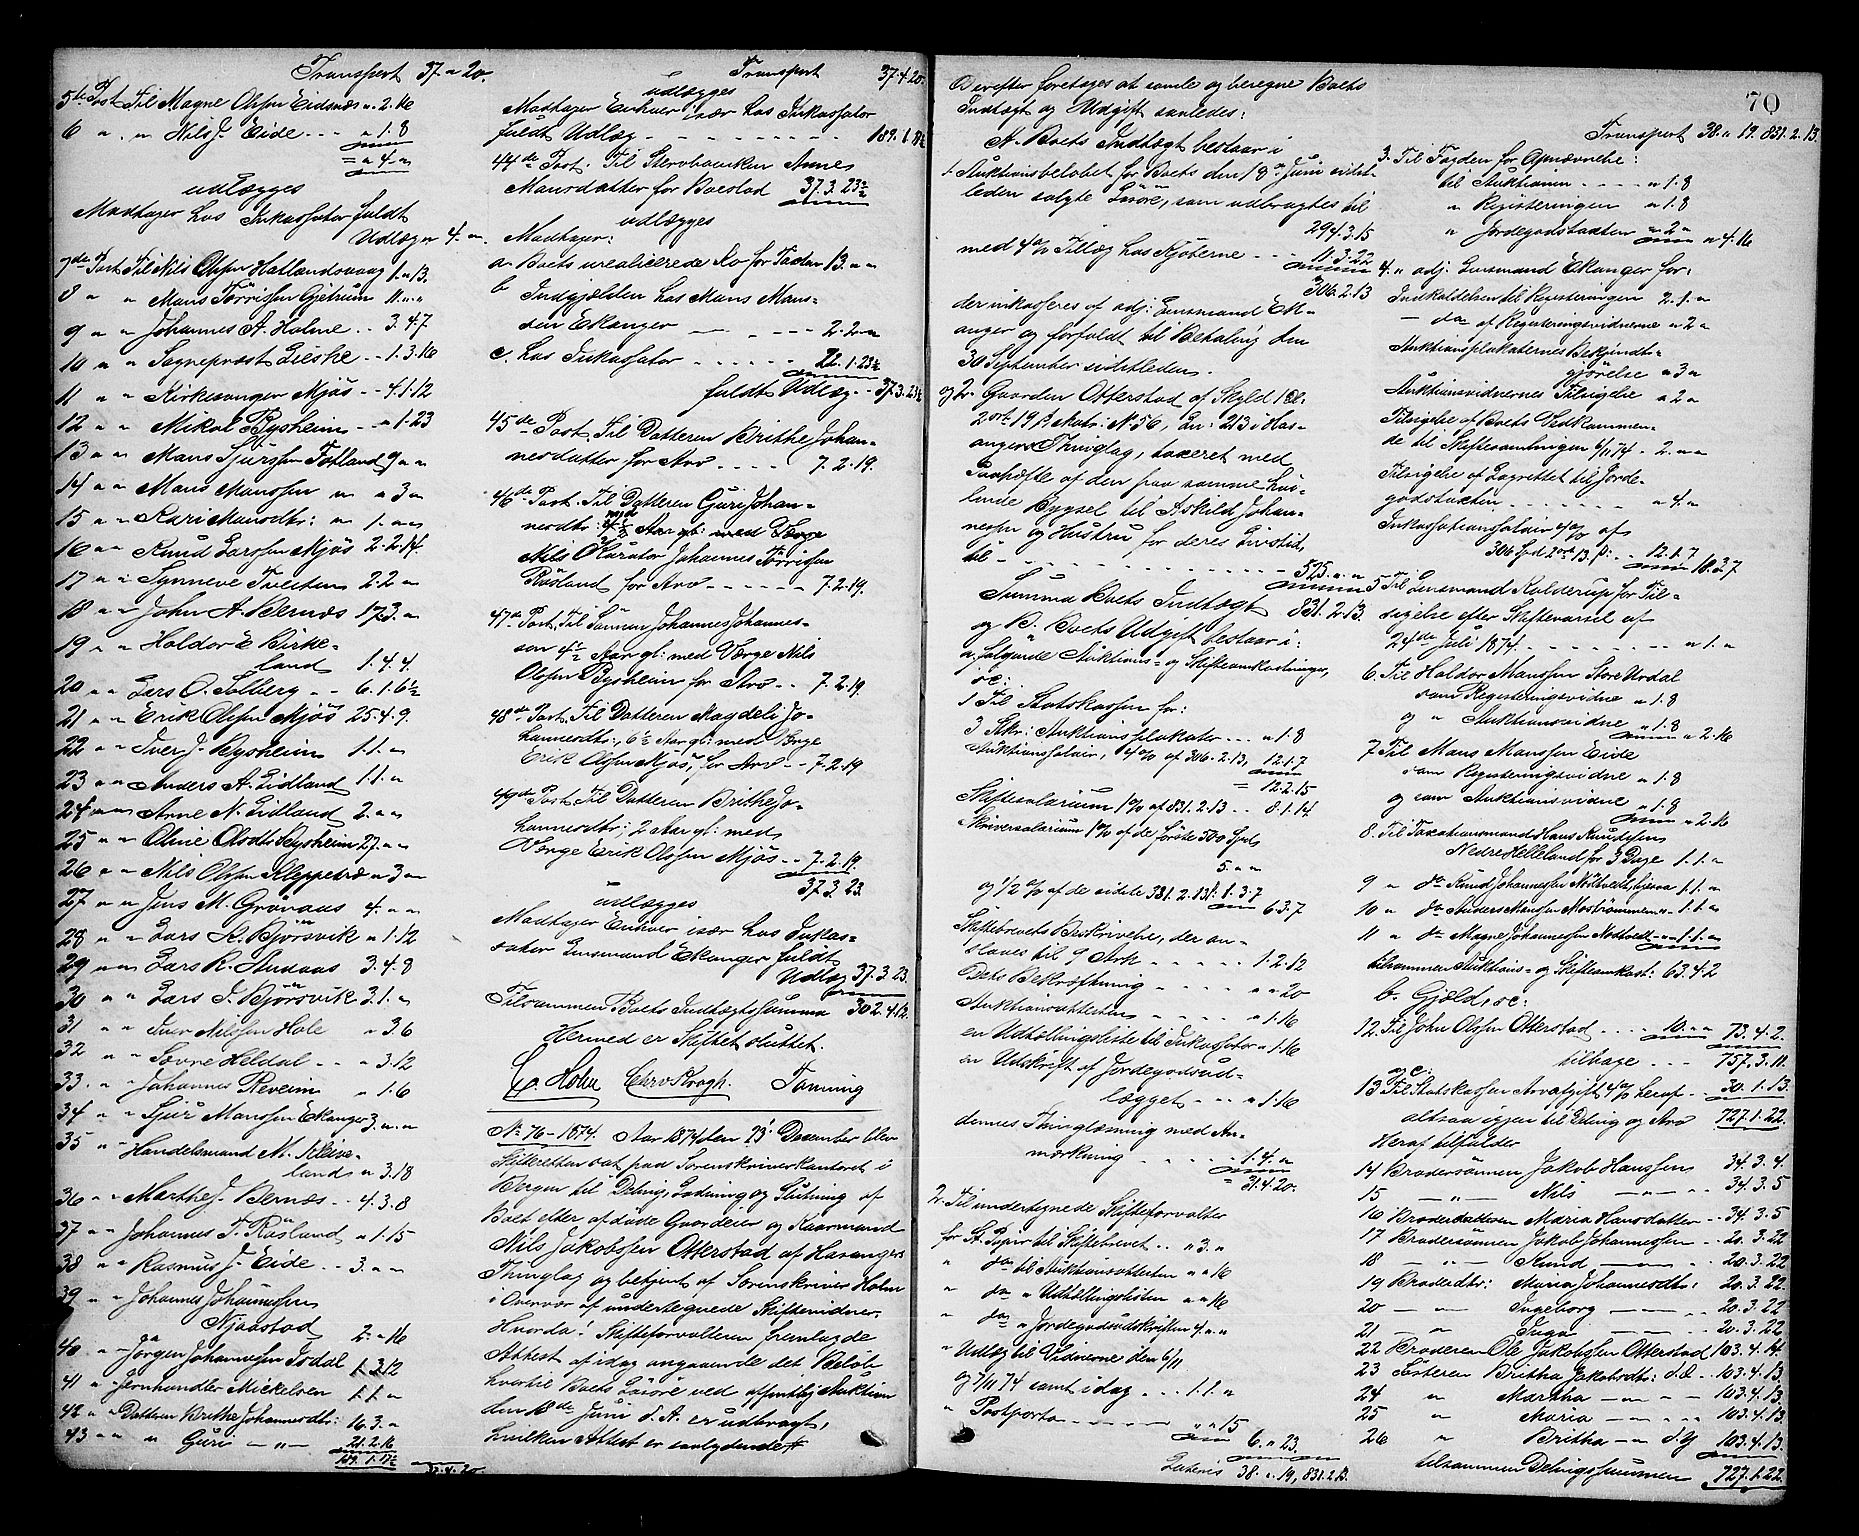 Transport 37 " 20.
5te Post Til Magne Olsen Eidsnæs " 2.16
6 " " Nils J. Eide - - - " 1.8
= " 4 "
udlægges
Modtager hos Inkassator fuldt
Udlæg 4. "
7de Post Til Nils Olsen Hatlandsvaag 1. " 13.
8 " " Mans Tørrissen Gjetrum 11. " "
9 " " Johannes A. Holme - - 3.4.7
10 " " Sogneprest Lieske - - 1.3.16
11 " " Kirkesanger Mjøs - - 4.1.12
12 " " Mikal Bysheim - - " 1.23
13 " " Mans Sjursen Totland 9 " "
14 " " Mans Manssen " " 3 "
15 " " Kari Mansdtr: " 1. " "
16 " " Knud Larssen Mjøs 2.2.14.
17 " " Synneve Tveiten 2.2 "
18 " " John A. Bernæs 17.3. "
19 " " Haldor E Birke-
land 1.4.4.
20 " " Lars O. Solberg - - 6.1.6½
21 " " Erik Olsen Mjøs 25.4.9.
22 " " Iver J. Bysheim 1.1. "
23 " " Anders A. Lidland 1.1. "
24 " " Anne N. Lidland 2. " "
25 " " Oline Olsdtr Bysheim 27. " "
26 " " Nils Olsen Kleppe " 3 "
27 " " Jens M. Grøvaas 4. " "
28 " " Lars K. Bjørsvik " 1.12
29 " " Lars R. Andaas 3.4.8
30 " " Lars I. Bjørsvik 3.1. "
31 " " Iver Nilssen Hole " 3.6
32 " " Sovre Heldal - - " 3.12
33 " " Johannes Reveim " 1.6
34 " " Sjur Manssen Ekanger 3. " "
35 " " Handelsmand M. Kleive-
land " 3.18
36 " " Marthe J. Bernæs - - 4.3.8
37 " " Johannes T. Røsland " 1.15
38 " " Rasmus J. Eide - - 3. " "
39 " " Johannes Johannessen
Njaastad 2. " 16
40 " " Jørgen Johannessen Isdal 1.3.12
41 " " Jernhandler Mickelsen 1.1. "
42 " " Datteren Brithe Johannesdtr: 16.3. "
43 " " " Guri — " — 21.2.16
189.1.11½
37.4.20.
Transport 37.4.20.
udlægges
Modtager Enhver især hos Inkassator
fuldt Udlæg - - - - - - - 189.1.11½
44de Post. Til Stervboenken Anne
Mansdatter for Boeslod 37.3.23½
udlægges
Modtager:
a. Boets urealiserede Ko for Taxten 13. " "
b Indgjælden hos Mans Mans-
sen Ekanger — — - - - 2.2. "
c. hos Inkassator - - - - - 22.1.23½
fuldt Udlæg - - 37.3.23½
45de Post. Til Datteren Brithe Johan-
nesdatter for Arv - - - - 7.2.19.
46de Post. Til Datteren Guri Johan-
nesdtr:
Nils Kurator Johannes Tørrissen
Røsland for Arv - - - - - 7.2.19.
47de Post. Til Sønnen Johannes Johannes-
sen 4½ Aar gl: med Værge Nils
Olssen Bysheim for Arv - - 7.2.19.
48de Post. Til Datteren Magdeli Jo-
hannesdtr:, 6½ Aar gl: med Værge
Erik Olssen Mjøs, for Arv - - 7.2.19
49de Post. Til Datteren Brithe Jo-
hannesdtr:, 2 Aar gl: med
Værge Erik Olssen Mjøs - - 7.2.19.
37.3.23.
udlægges
Modtager Enhver især hos Inkas-
sator Lensmand Ekanger fuldt
Udlæg 37.3.23.
Tilsammen Boets Indtægtssumma 302.4.12.
Hermed er Skiftet sluttet.
Holm Chr. v. Krogh. Tanning
No 76 - 1874. Aar 1874 den 23' December blev
Skifteretten sat paa Sorenskriverkontoret i
Bergen til Deling, Lodning og Slutning af
Boet efter afdøde Gaardeier og Kaarmand
Nils Jakobssen Otterstad af Hosangers
Thinglag og betjent af Sorenskriver Holm
i Overvær af undertegnede Skiftevidner.
Hvorda! Skifteforvalteren fremlagde
Attest af idag angaaende det Beløb
hvortil Boets Løsøre ved offentlig Auktion
den 18de Juni d.A. er udbragt,
hvilken Attest er saalydende #
Derefter foretages at samle og beregne Boets
Indtægt og Udgift saaledes:
A. Boets Indtægt bestaar i
1. Auktionsbeløbet for Boets den 18de Juni sidst-
leden solgte Løsøre, som udbragtes til
294.3.15
med 4% Tillæg hos Kjøberne - - - 11.3.22
306.2.13
der inkasseres af adj: Lensmand Ek-
anger og forfaldt til Betaling den
30 September sidstleden.
og 2. Gaarden Otterstad af Skyld 1 Dl.
2 ort 19 β Matr: N 56, Ln: 213 i Hos-
angers Thinglag, taxeret med
Paahefte af den paa samme hvi-
lende Bygsel til Askild Johan-
nessen og Hustru for deres Livstid,
til - - - - - - - - - 525. " "
Summa Boets Indtægt 831.2.13.
og B. Boets Udgift bestaar i:
a. følgende Auktions- og Skifteomkostninger,
sc:
1 Til Statskassen for:
3 Skr: Auktionsplakater - - - " 1.8
Auktionssalair, 4% af 306.2.13, 12.1.7
= 12.2.15
Skiftesalarium 1% af 831.2.13 - - 8.1.14.
Skriversalarium 1% af de første 500 Spd.
5. " "
og 1/2% af de sidste 331.2.13 β: 1.3.7
6.3.7
Skiftebrevets Beskrivelse, der an-
slaaes til 9 Ark - - - - - 1.2.12
Dets Bekræftning - - - - " " 20
Auktionsattesten - - - - " 1.16
en Udtællingsliste til Inkassator " 1.16
en Udskrift af Jordegodsud-
lægget - - - " 1.16
dennes Thinglæsning med An-
mærkning - - - - 1.4. "
= 31.4.20.
2. Til undertegnede Skifteforvalter
for St. Papir til Skiftebrevet - - " 3. "
" do til Auktionsattesten " " 16
" do " Udtællingslisten " " 16
" do " Jordegodsudskriften 4. " "
" Udlæg til Vidnerne den 6/11
og 7/11 74 samt idag - - - 1.1. "
" Postporto - - - - - " " 15
6. " 23.
Lateris 38. " 19, 831.2.13.
70
Transport 38. " 19. 831.2.13.
3. Til Fogden for Opnævnelse:
til Auktionen - - - - " 1.8
" Registeringen " 1.8
" Jordegodstaxten " 2 " " 4.16
4. " adj. Lensmand Ekanger for:
Indkaldelsen til Registeringen 2.1. "
— do af Registeringsvidnerne " 2 "
Auktionsplakaternes Bekjendt-
gjørelse " 3 "
Auktionsvidnernes Tilsigelse " 2 "
Tilsigelse af Boets Vedkommen-
de til Skiftesamlingen 6/11 74 - 2. " "
Tilsigelse af Lagrettet til Jorde-
godstaxten - - - - - - " 4. "
Inkassationssalair 4% af
306 Spd 2 ort 13 β: - - 12.1.7 18.3.7
5 Til Lensmand Kalderup for Til-
sigelse efter Skiftevarsel af
24de Juli 1874 - - - - - - - - " 1. "
6. Til Haldor Manssen Store Urdal
som Registeringsvidne " 1.8
og " Auktionsvidne " 1.8 " 2.16
7 Til Mans Manssen Eide
som Registeringsvidne " 1.8
og som Auktionsvidne " 1.8 " 2.16
8. Til Taxationsmand Hans Knudssen
Nedre Helleland for 3 Dage 1.1. "
9 " do Knud Johannessen 1.1. "
10 " do Anders Manssen Mostrømmen - 1.1. "
11 " do Magne Johannessen - - 1.1. "
tilsammen Auktions- og Skifteomkost: 63.4.2
b. Gjæld, sc:
12. Til John Olssen Otterstad - - - - 10. " " 73.4.2.
tilbage - - - 757.3.11.
og c.
13 Til Statskassen Arveafgift 4% heraf - - 30.1.13.
altsaa igjen til Deling og Arv 727.1.22.
Heraf tilfalder
14 Brodersønnen Jakob Hanssen 34.3.4.
15 — " — Nils — " — 34.3.5
16 Broderdatteren Maria Hansdatter - - 34.3.5
17 Brodersønnen Jakob Johannessen - - 20.3.22
18 " Knud — " — 20.3.22
19 Broderdtr: Maria Johannesdtr: 20.3.22.
20 — " — Ingeborg — " — 20.3.22
21 — " — Inga — " — 20.3.22
22 Broderen Ole Jakobssen Otterstad 103.4.14.
23 Søsteren Britha Jakobsdtr: d.Æ. - - 103.4.13.
24 " Martha — " — 103.4.13.
25 " Maria — " — 103.4.13.
26 " Britha — " d.Y 103.4.13.
tilsammen Delingssummen 727.1.22.